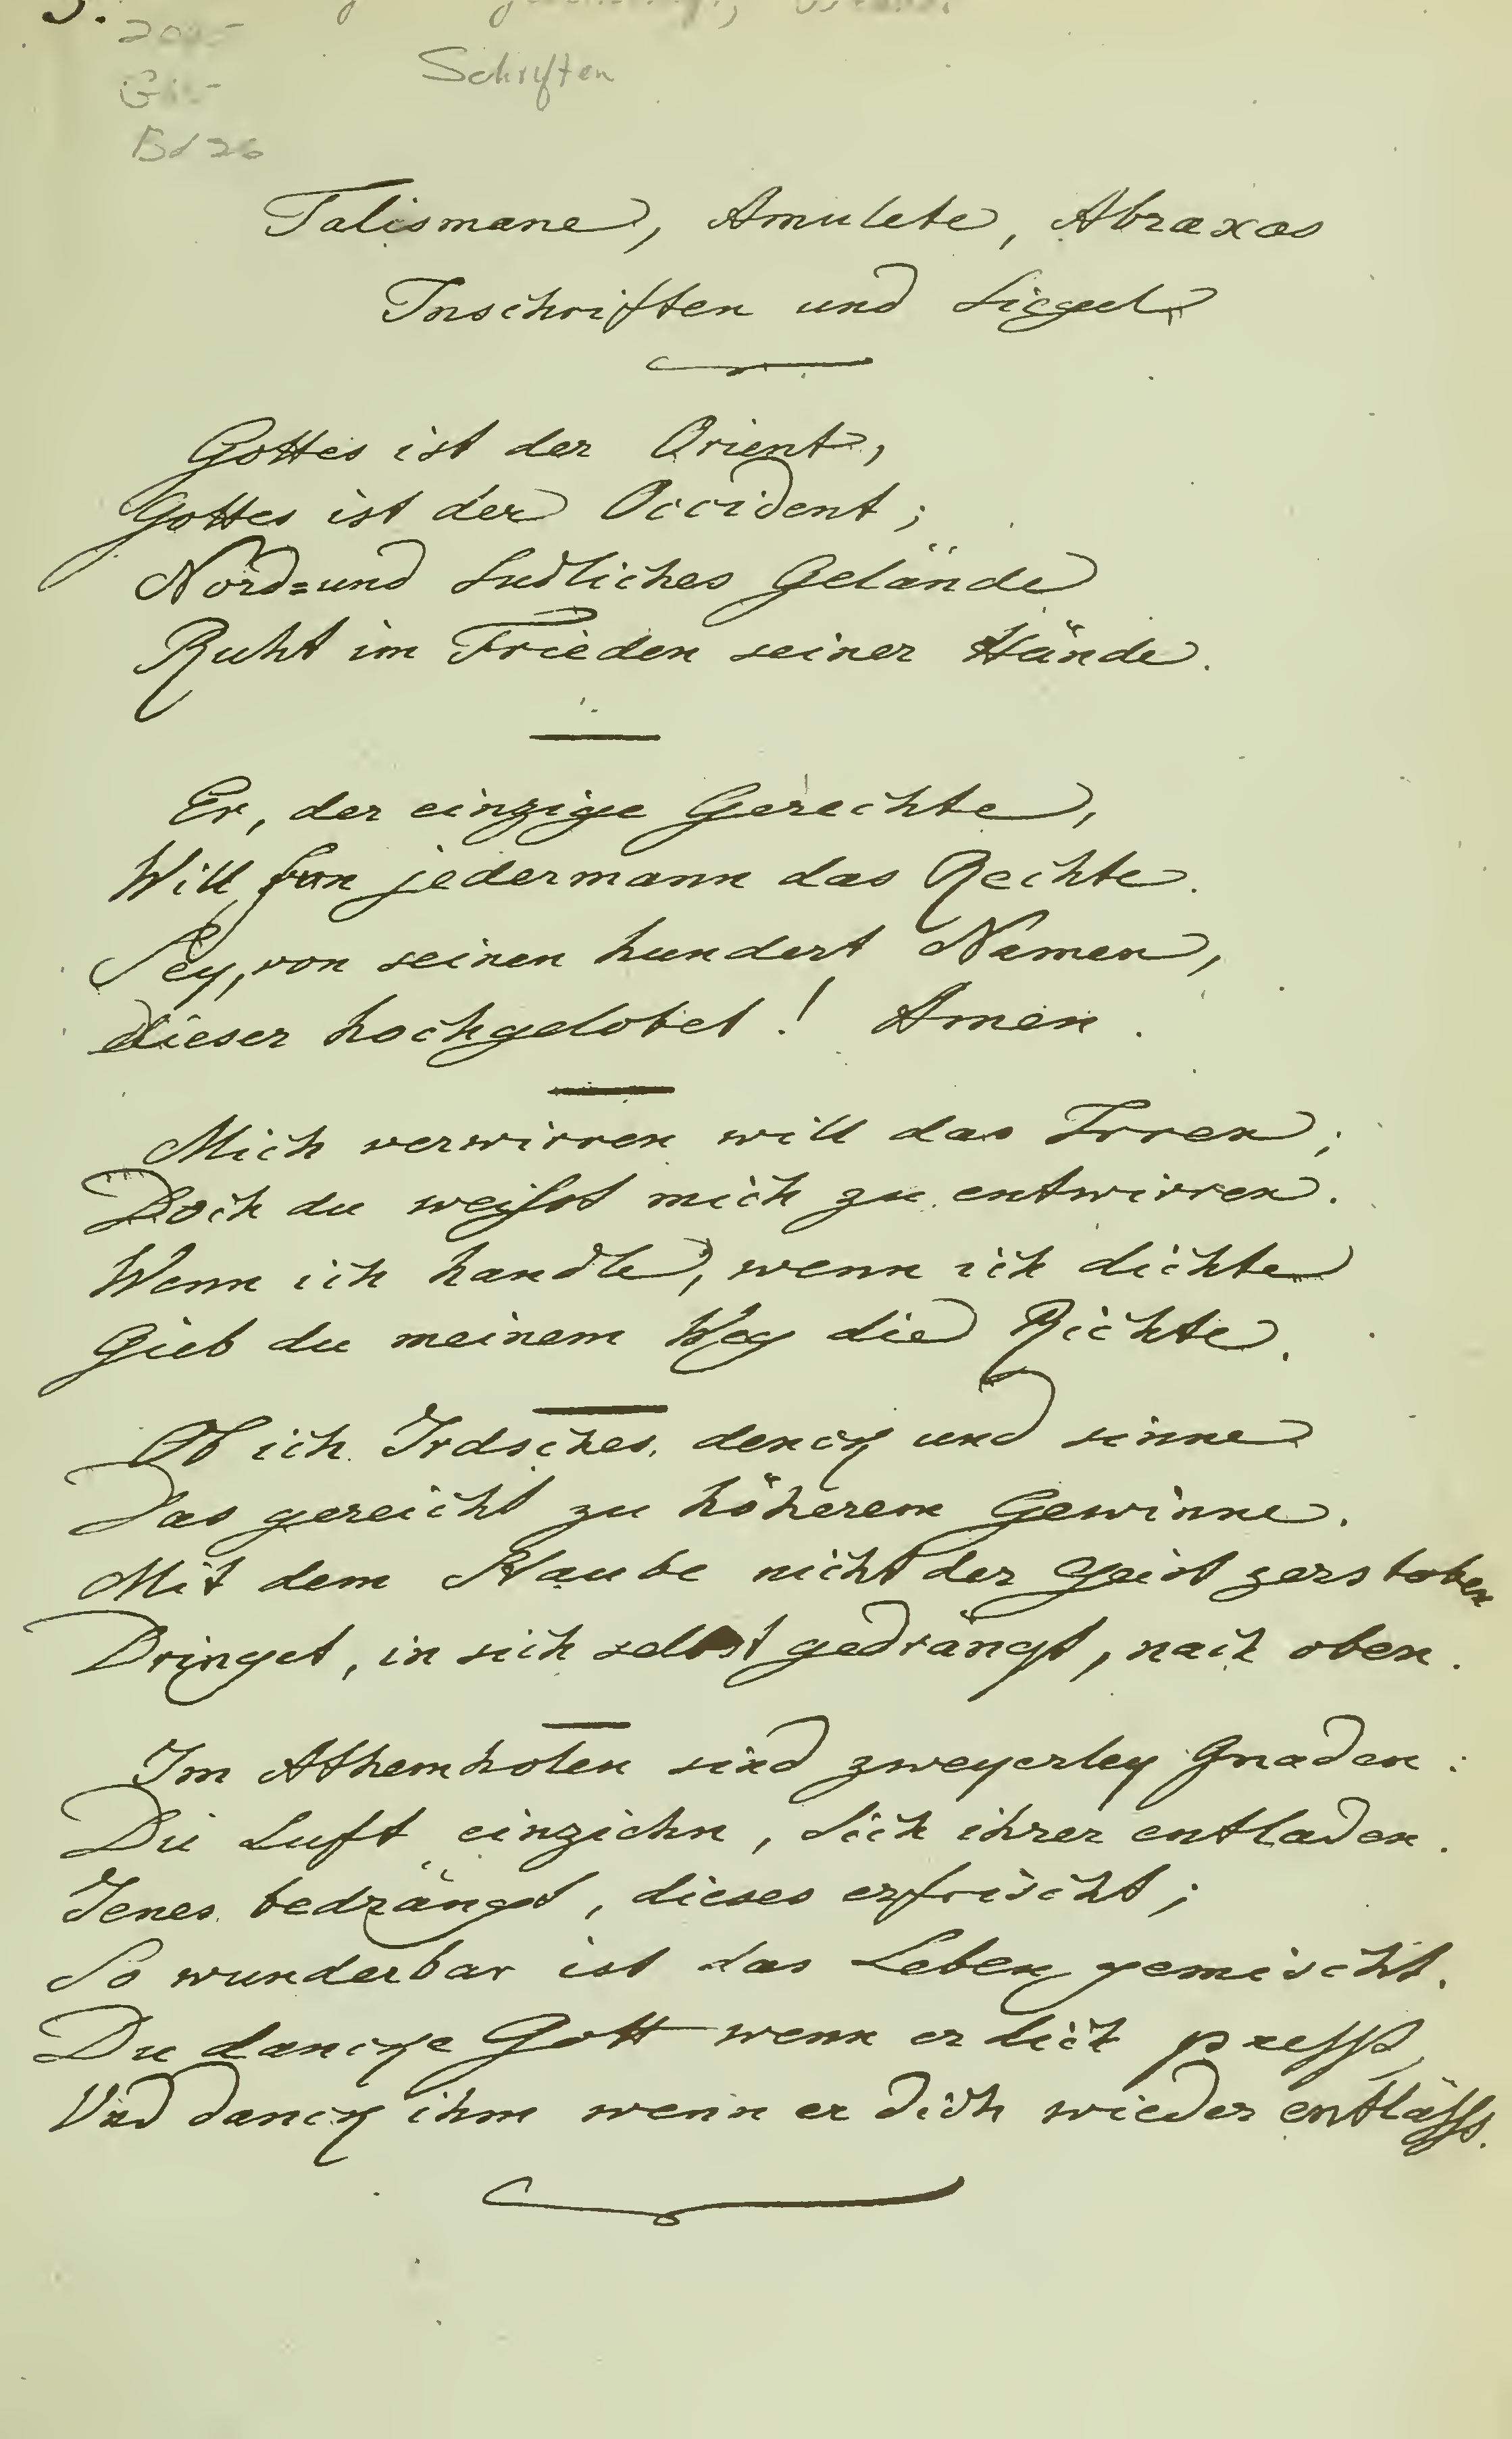 Schriften
Bd 26
Talismane, Amulete, Abraxas
Inschriften und Siegel
Gottes ist der Orient,
Gottes ist der Occident;
Nord=und Südliches Gelände
Ruht im Frieden seiner Hände.
Er, der einzige Gerechte,
Will für jedermann das Rechte.
Sey, von seinen hundert Namen,
dieser hochgelobet! Amen.
Mich verwirren will das Irren;
Doch du weißst mich zu entwirren.
Wenn ich handle, wenn ich dichte
Gieb du meinem Weg die Richte.
Ob ich Irdsches denck und sinne
Das gereicht zu höherem Gewinne.
Mit dem Staube nicht der Geist zerstoben
Dringet, in sich selbst gedrängt, nach oben.
Im Athemholen sind zweyerley Gnaden:
Die Luft einziehn, Sich ihrer entladen.
Jenes bedrängt, dieses erfrischt;
So wunderbar ist das Leben gemischt.
Du dancke Gott wenn er dich presst,
Und danck ihm wenn er dich wieder entlässt.